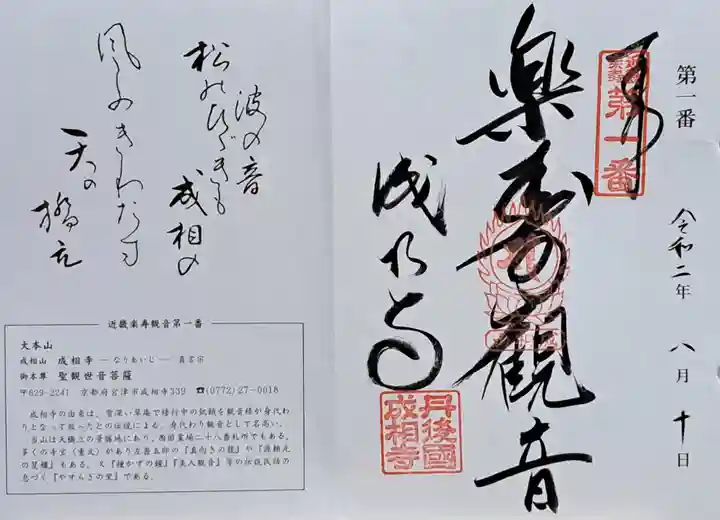 第一番
令和二年 八月 十日
奉
近畿楽寿
第一番
楽寿観音
成相寺
丹後國
成相寺
波の音
松のひゞきも
成相の
風ふきわたす
天の
橋立
近畿楽寿観音第一番
大本山
成相山 成相寺 ―なりあいじ― 真言宗
御本尊 聖観世音菩薩
〒629-2241 京都府宮津市成相寺339 ☎(0772)27-0018
成相寺の由来は、雪深い草庵で修行中の飢餓を観音様が身代わ
りとなって救ったとの伝説による。身代わり観音として名高い。
当山は天橋立の景勝地にあり、西国霊場二十八番札所でもある。
多くの寺宝（重文）があり左甚五郎の『真向きの龍』や『源頼光
の
』もある。又『撞かずの鐘』『美人観音』等の伝説民話の
息づく『やすらぎの里』である。